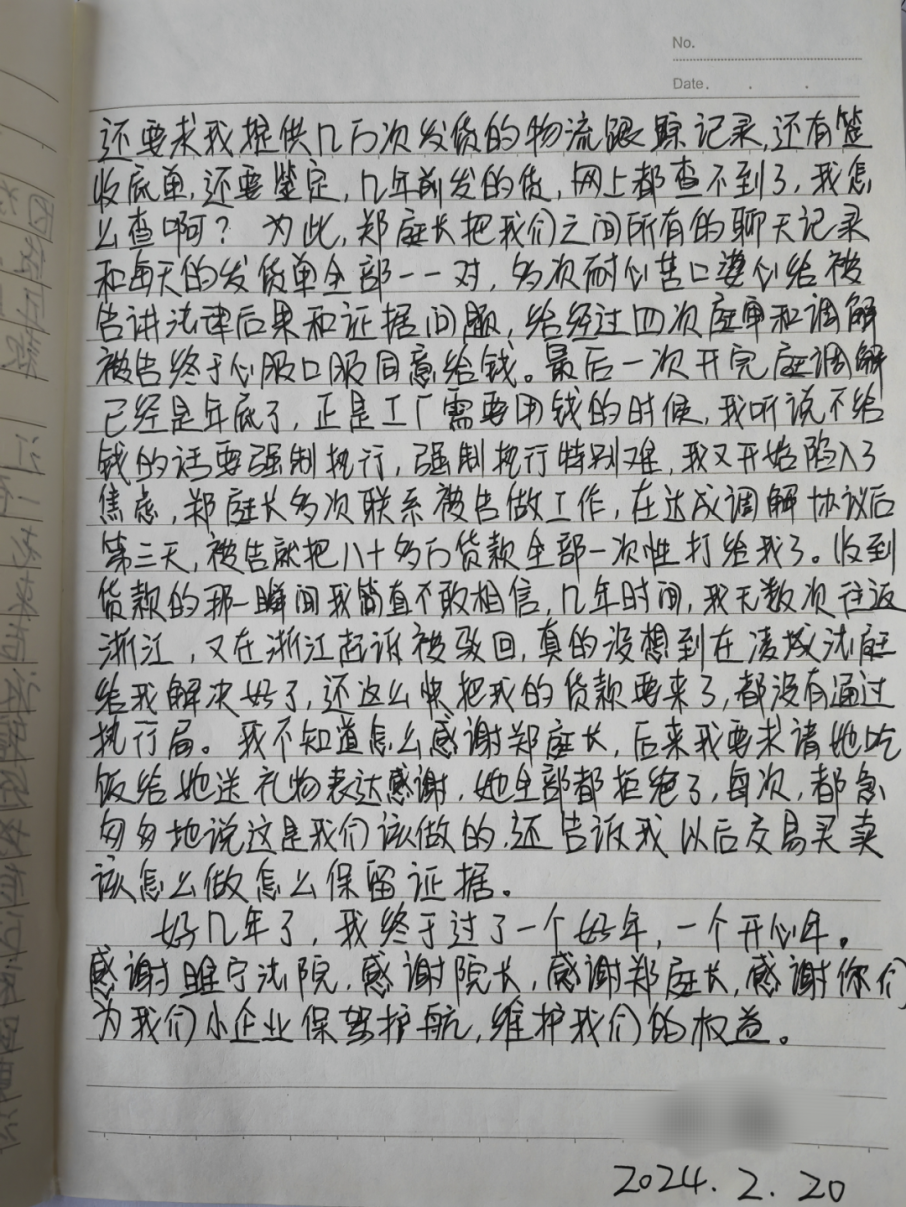 No.
Date.
还要求我提供几万次发货的物流跟踪记录,还有签
收底单,还要鉴定,几年前发的货,网上都查不到了,我怎
么查啊? 为此,郑庭长把我们之间所有的聊天记录
和每天的发货单全部一一对,多次耐心苦口婆心给被
告讲法律后果和证据问题,给经过四次庭审和调解
被告终于心服口服同意给钱。最后一次开完庭调解
已经是年底了,正是工厂需要用钱的时候,我听说不给
钱的话要强制执行,强制执行特别难,我又开始陷入了
焦虑,郑庭长多次联系被告做工作,在达成调解协议后
第三天,被告就把八十多万货款全部一次性打给我了。收到
货款的那一瞬间我简直不敢相信,几年时间,我无数次往返
浙江,又在浙江起诉被驳回,真的没想到在凌城法庭
给我解决好了,还这么快把我的货款要来了,都没有通过
执行局。我不知道怎么感谢郑庭长,后来我要求请她吃
饭给她送礼物表达感谢,她全部都拒绝了,每次,都急
匆匆地说这是我们该做的,还告诉我以后交易买卖
该怎么做怎么保留证据。
好几年了,我终于过了一个好年,一个开心年。
感谢睢宁法院,感谢院长,感谢郑庭长,感谢你们
为我们小企业保驾护航,维护我们的权益。
2024.2.20